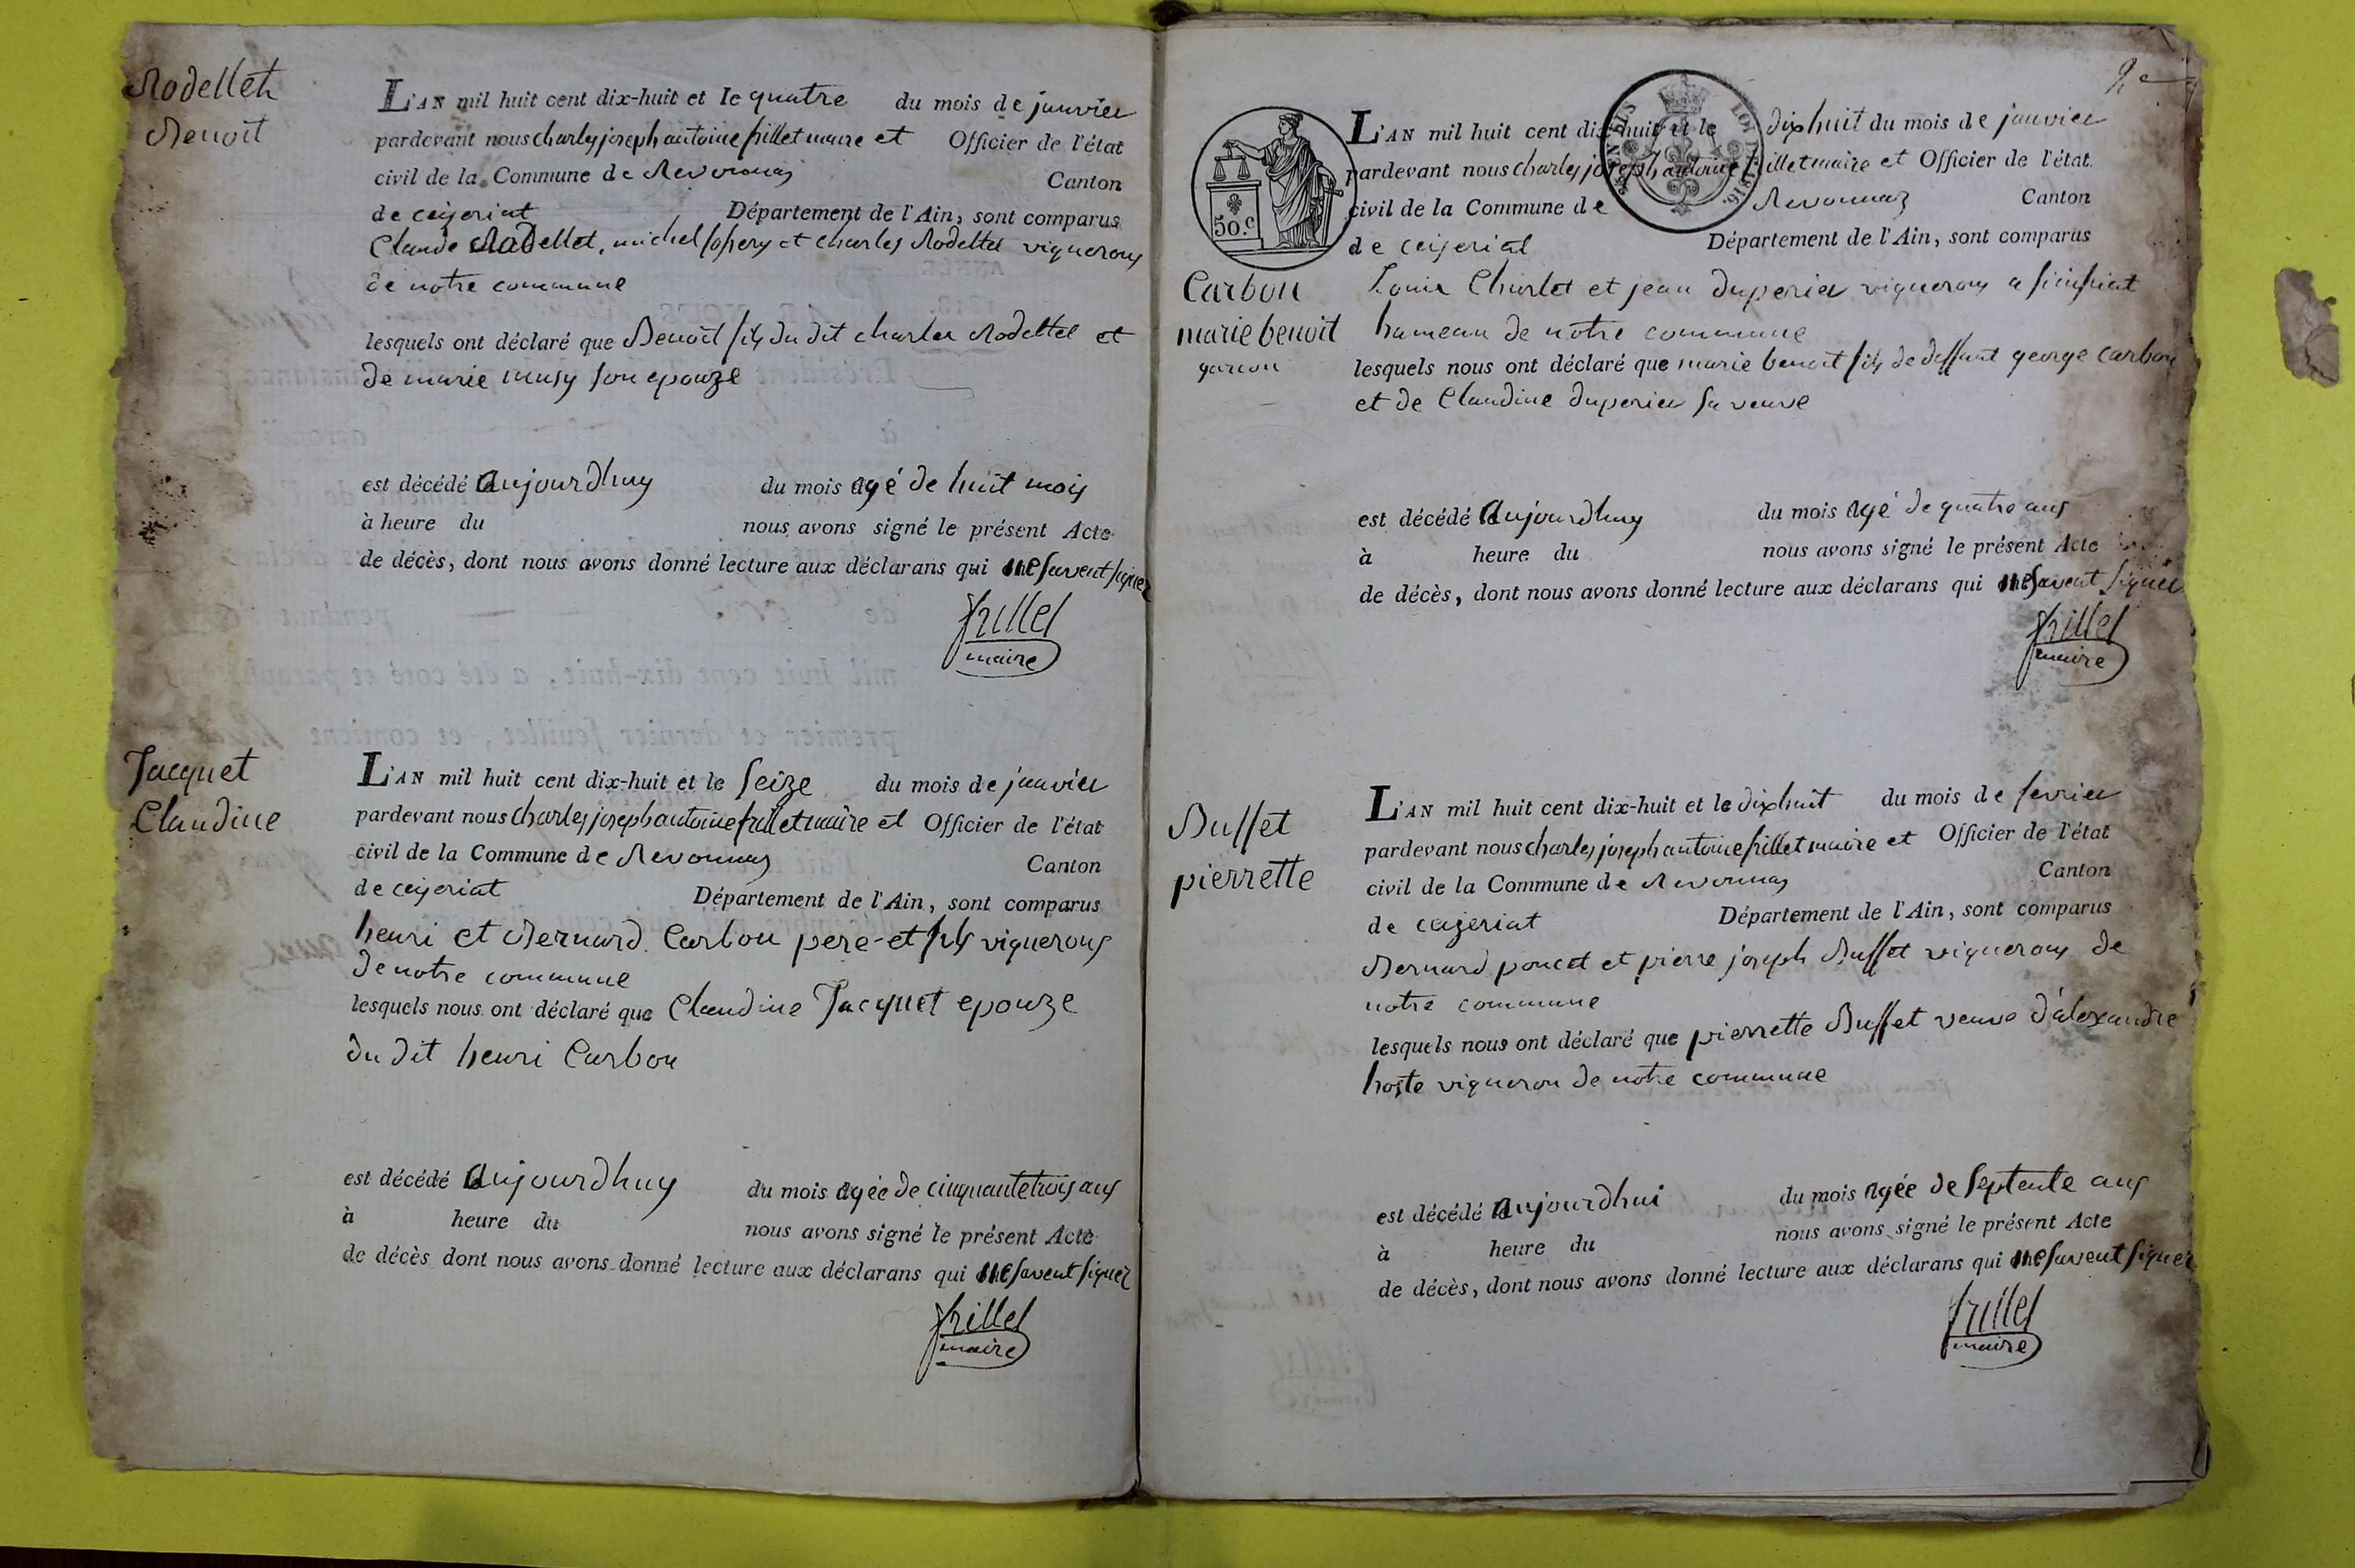 Rodellet
Benoit
L'AN mil huit cent dix-huit et le quatre du mois de janvier
pardevant nous charles joseph antoine frillet maire et Officier de l'état
civil de la Commune de Revonnas Canton
de ceÿzeriat Département de l'Ain, sont comparus
Claude Rodellet, michel et charles Rodellet vignerons
de notre commune
lesquels ont déclaré que Benoit fils du dit charles Rodellet et
de marie musy son epouze
est décédé aujourdhuy du mois agé de huit mois
à heure du nous avons signé le présent Acte
de décès, dont nous avons donné lecture aux déclarans qui ne savent signer
frillet
maire
Jacquet
Claudine
L'AN mil huit cent dix-huit et le seize du mois de janvier
pardevant nous charles joseph antoine frillet maire et Officier de l'état
civil de la Commune de Revonnas Canton
de ceÿzeriat Département de l'Ain, sont comparus
henri et Bernard Carbon pere et fils vignerons
de notre commune
lesquels nous ont déclaré que Claudine Jacquet epouze
du dit henri Carbon
est décédé aujourdhuy du mois agée de cinquantetrois ans
à heure du nous avons signé le présent Acte
de décès dont nous avons donné lecture aux déclarans qui ne savent signer
frillet
maire
2e
50.c
LOI DE 1816
L'AN mil huit cent dix-huit et le dixhuit du mois de janvier
pardevant nous charles joseph antoine frillet maire et Officier de l'état
civil de la Commune de Revonnas Canton
de ceÿzeriat Département de l'Ain, sont comparus
Carbon
marie benoit
garcon
Louis Charlet et jean duperier vignerons a
hameau de notre commune
lesquels nous ont déclaré que marie benoit fils de deffunt george Carbon
et de Claudine duperier sa veuve
est décédé aujourdhuy du mois agé de quatre ans
à heure du nous avons signé le présent Acte
de décès, dont nous avons donné lecture aux déclarans qui ne savent signer
frillet
maire
Buffet
pierrette
L'AN mil huit cent dix-huit et le dixhuit du mois de fevrier
pardevant nous charles joseph antoine frillet maire et Officier de l'état
civil de la Commune de Revonnas Canton
de ceÿzeriat Département de l'Ain, sont comparus
Bernard poncet et pierre joseph Buffet vignerons de
notre commune
lesquels nous ont déclaré que pierrette Buffet veuve d'alexandre
hoste vigneron de notre commune
est décédé aujourdhui du mois agée de septente ans
à heure du nous avons signé le présent Acte
de décès, dont nous avons donné lecture aux déclarans qui ne savent signer
frillet
maire